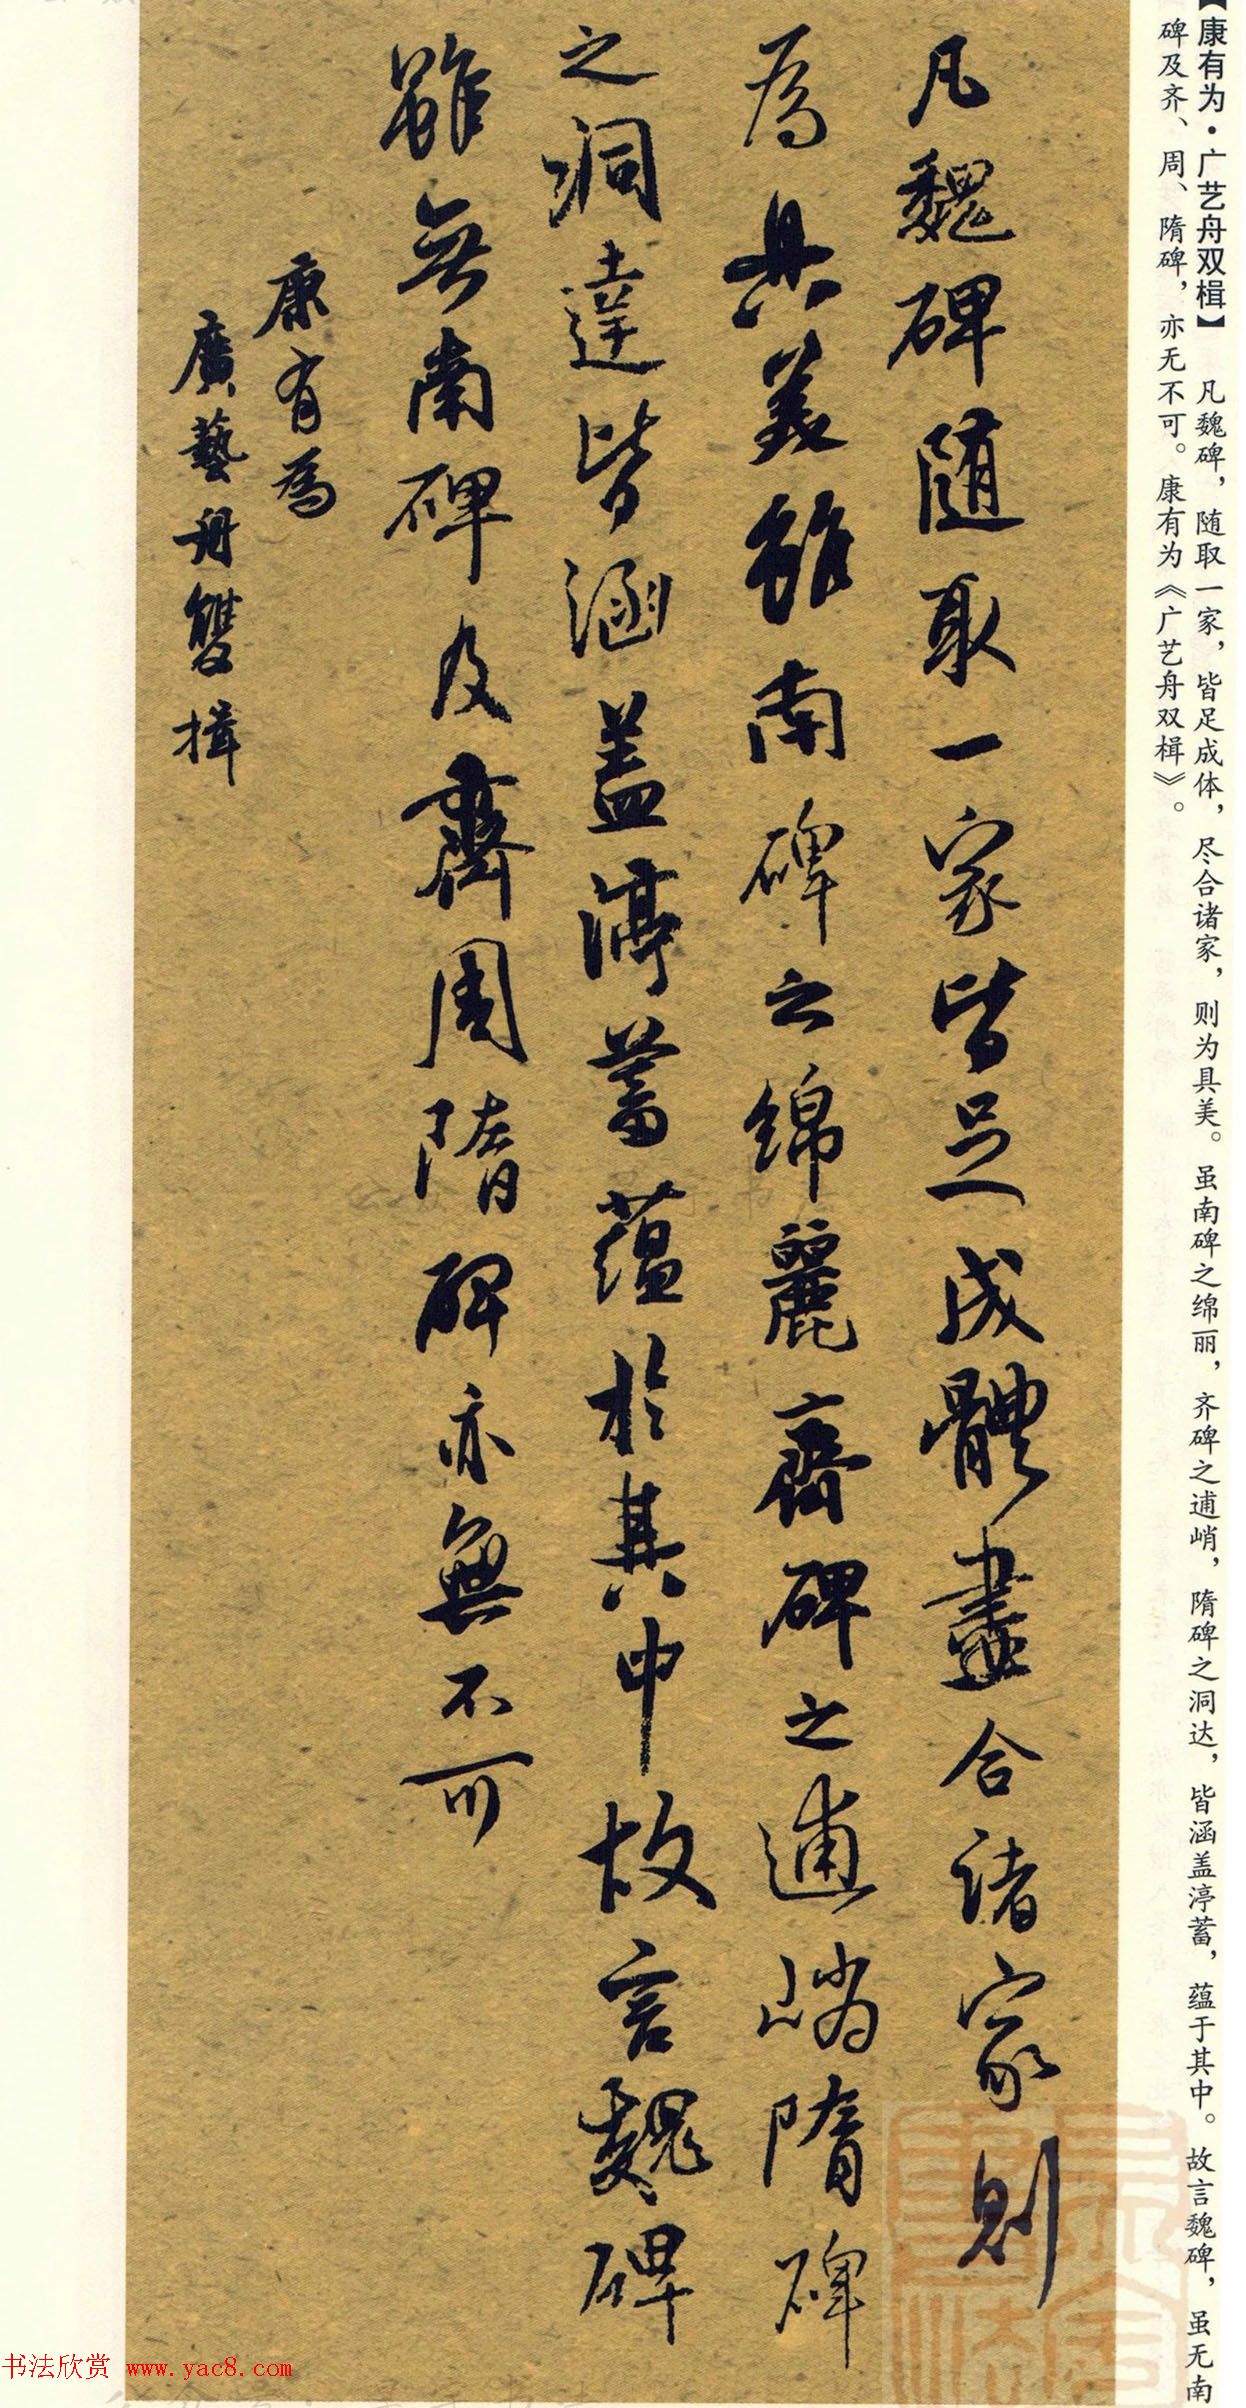 【康有为·广艺舟双楫】 凡魏碑，随取一家，皆足成体，尽合诸家，则为具美。虽南碑之绵丽，齐碑之逋峭，隋碑之洞达，皆涵盖渟蓄，蕴于其中。故言魏碑，虽无南
碑及齐、周、隋碑，亦无不可。康有为《广艺舟双楫》。
凡魏碑随取一家皆足成體盡合諸家則
為具美雖南碑之綿麗齊碑之逋峭隋碑
之洞達皆涵蓋渟蓄蕴於其中故言魏碑
雖無南碑及齊周隋碑亦無不可
康有為
廣藝舟雙楫
书法欣赏 www.yac8.com